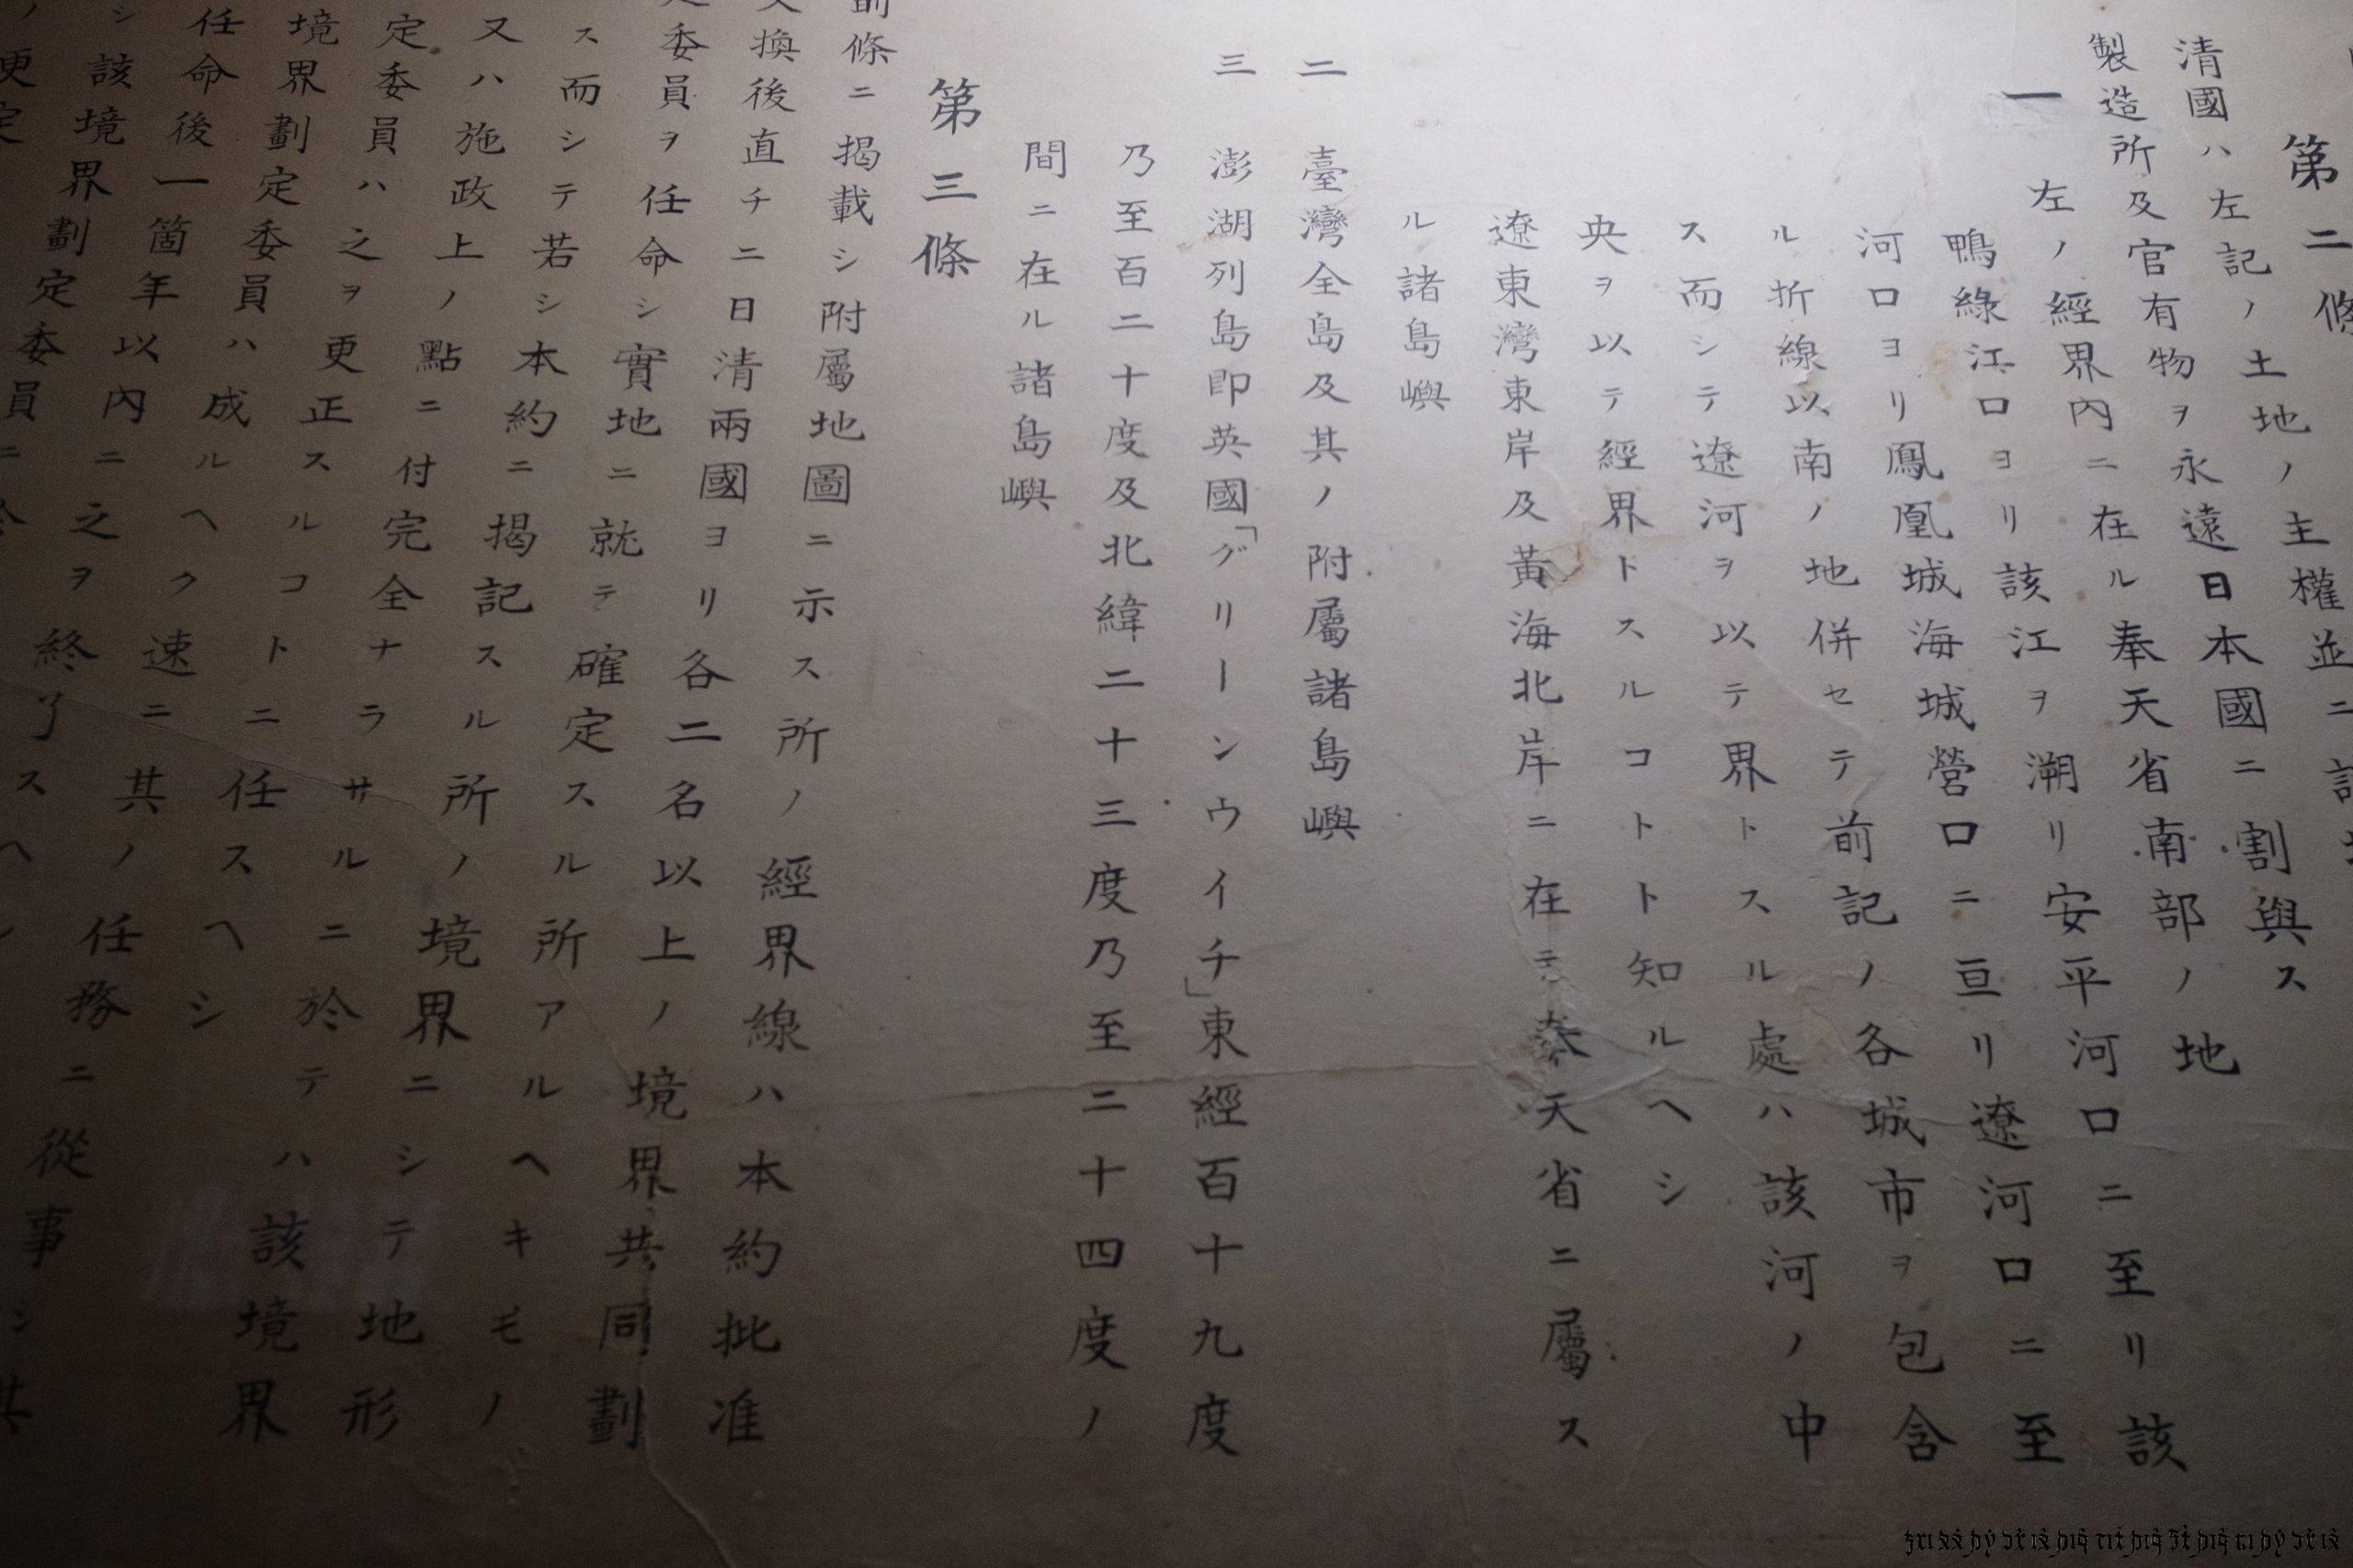 第二條
清國ハ左記ノ土地ノ主權並ニ
製造所及官有物ヲ永遠日本國ニ割與ス
一 左ノ經界內ニ在ル奉天省南部ノ地
鴨綠江口ヨリ該江ヲ溯リ安平河口ニ至リ該
河口ヨリ鳳凰城海城營口ニ亘リ遼河口ニ至
ル折線以南ノ地併セテ前記ノ各城市ヲ包含
ス而シテ遼河ヲ以テ界トスル處ハ該河ノ中
央ヲ以テ經界トスルコトト知ルヘシ
遼東灣東岸及黃海北岸ニ在テ奉天省ニ屬ス
ル諸島嶼
二 臺灣全島及其ノ附屬諸島嶼
三 澎湖列島即英國「グリーンウイチ」東經百十九度
乃至百二十度及北緯二十三度乃至二十四度ノ
間ニ在ル諸島嶼
第三條
前條ニ揭載シ附屬地圖ニ示ス所ノ經界線ハ本約批准
交換後直チニ日清兩國ヨリ各二名以上ノ境界共同劃
定委員ヲ任命シ實地ニ就テ確定スル所アルヘキモノ
ス而シテ若シ本約ニ揭記スル所ノ境界ニシテ地形
又ハ施政上ノ點ニ付完全ナラサルニ於テハ該境界
定委員ハ之ヲ更正スルコトニ任スヘシ
境界劃定委員ハ成ルヘク速ニ其ノ任務ニ從事シ其
任命後一箇年以內ニ之ヲ終了スヘシ
シ該境界劃定委員ニ
更定